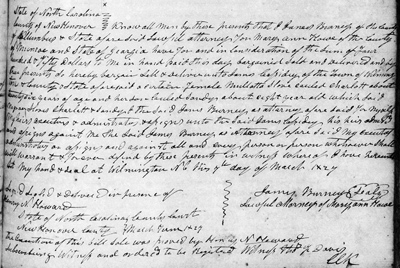 State of North Carolina
County of New Hanover } Know all Men by these presents that I James Burney of the County
of Columbus & State aforesaid Lawful attorney for Mary Ann Howe of the County
of Monroe and State of Georgia have for and in Consideration of the Sum of four
hundred & fifty Dollars to Me in hand paid this day bargained Sold and delivered and by
these presents do hereby bargain Sell & deliver unto James Cassidey, of the Town of Wilming
ton County & State aforesaid a certain female Mullatto Slave called Charlott about
years of age and her Son called Sandy about eight years old which said
Negroes Charlott & Sandy I the said James Burney as attorney aforesaid for Myself
My executors & administrators & assigns unto the Said James Cassidey, his heirs
and assigns against Me the said James Burney, as Attorney aforesaid My executors
administrators or assigns and against all and every person or persons whosoever Shall
and will warrant & forever defend by these presents in witness whereof I have hereunto
set My hand & seal at Wilmington No Ca this 9th day of March 1829
Signed Sealed & Delivered in presence of
Howard
James Burney (Seal)
Lawful Attorney of Mary Ann Howe
State of North Carolina County Court
New Hanover County } March Term 1829
The execution of this bill Sale was proved by Howard
Subscribing Witness and ordered to be Registered Witness Davis
Clk